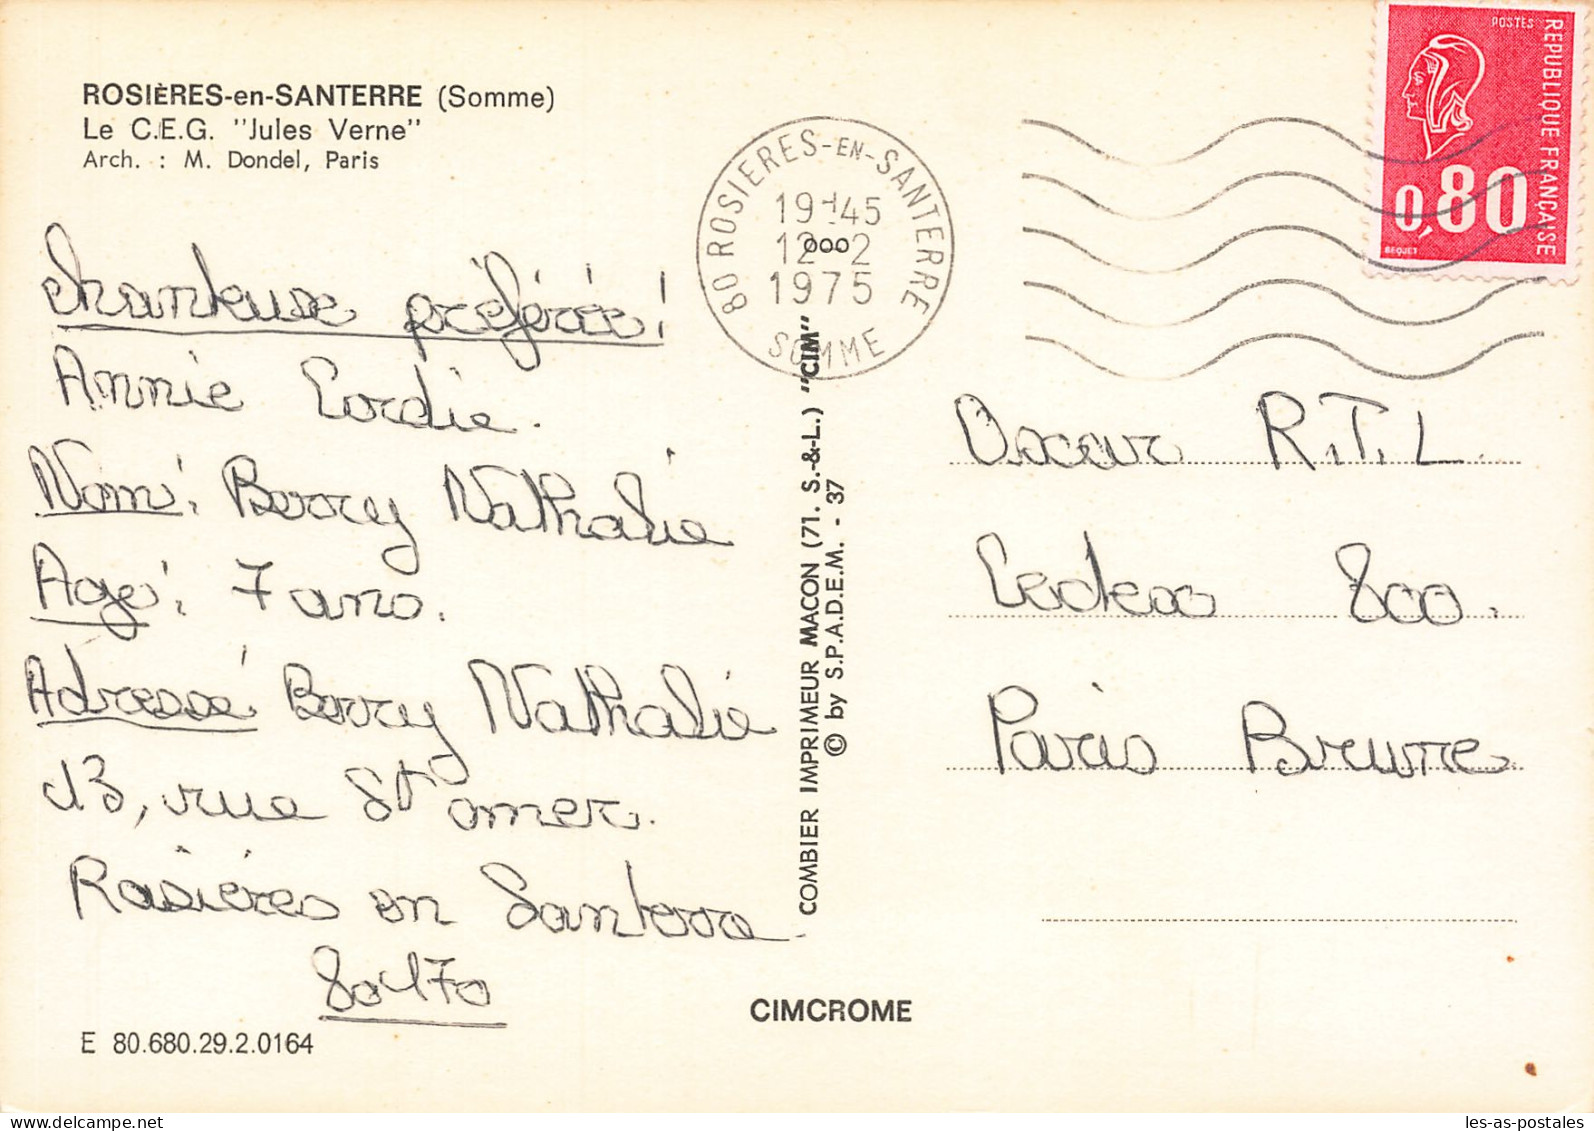 ROSIÈRES-en-SANTERRE (Somme)
Le C.E.G. "Jules Verne"
Arch. : M. Dondel, Paris
Chanteuse préférée!
Annie Cordie.
Nom: Borry Nathalie
Age: 7 ans.
Adresse Borry Nathalie
13, rue St omer.
Rosières en Santerre
80170
E 80.680.29.2.0164
80 ROSIERES-EN-SANTERRE
19H45
12-2
1975
SOMME
COMBIER IMPRIMEUR MACON (71. S.-&-L.) "CIM"
© by S.P.A.D.E.M. - 37
CIMCROME
POSTES
REPUBLIQUE FRANÇAISE
0,80
BEQUET
Oscar R.T.L.
Cedex 800.
Paris Brune
les-as-postales